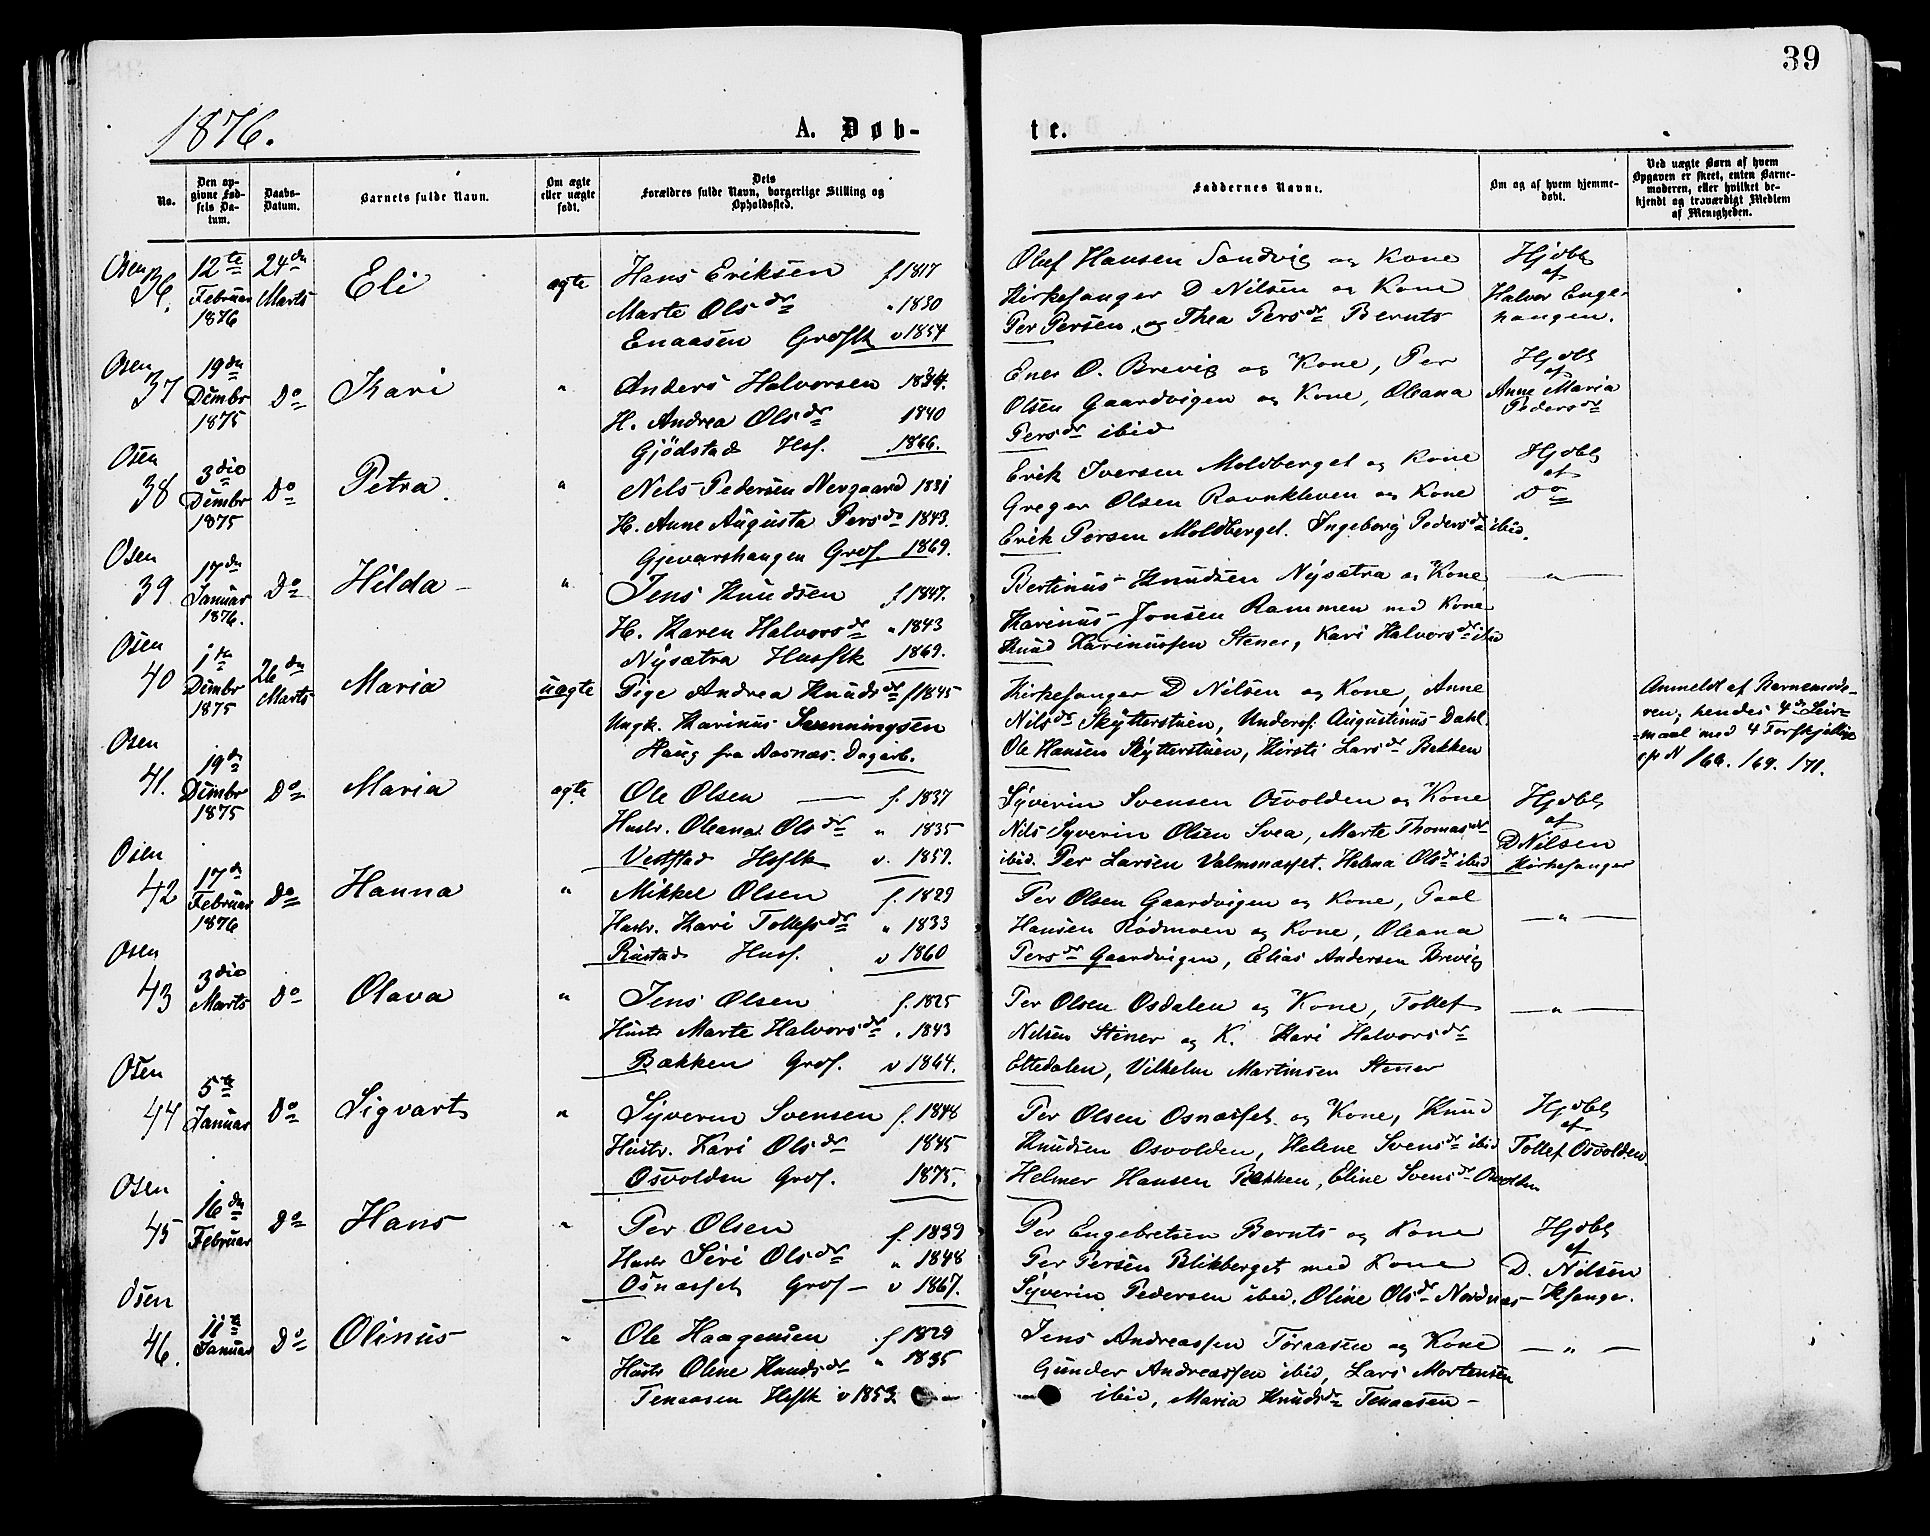 39
1876.
A. Døb-
te.
No.
Den op-
givne Fød-
sels Da-
tum.
Daabs-
Datum.
Barnets fulde Navn.
Om ægte
eller uægte
født.
Dets
Forældres fulde Navn, borgerlige Stilling og
Opholdssted.
Faddernes Navne.
Om og af hvem hjemme-
døbt.
Ved uægte Børn af hvem
Opgaven er skeet, enten Barne-
moderen, eller hvilket be-
kjendt og troværdigt Medlem
af Menigheden.
Osen
36.
12te
Februar
1876
24dn
Marts
Eli
ægte
Hans Eriksen f 1817
Marte Olsdr " 1830
Enaasen v 1854
Oluf Hansen Sandvig og Kone
Kirkesanger D Nilsen og Kone
Per Persen og Thea Persdr Bernts
Hjdbt
af
Halvor Enge-
haugen.
Osen
37
19dn
Dcmbr
1875
Do
Kari
"
Anders Halvorsen 1834.
H. Andrea Olsdr 1840
Gjödstad Hsf. 1866.
Ener O. Brevig og Kone, Per
Olsen Gaardvigen og Kone, Oleana
Persdr ibid
Hjdbt
af
Anne Maria
Pedersdr
Osen
38
3dio
Dcmbr
1875
Do
Petra
"
Nels Pedersen Nergaard 1831
H. Anne Augusta Persdr 1843.
Gjevarshaugen 1869.
Erik Iversen Moldberget og Kone
Greger Olsen Ravnkleven og Kone
Erik Persen Moldberget. Ingeborg Pedersdr ibid.
Hjdbt
af
Do
Osen
39
17dn
Januar
1876.
Do
Hilda
"
Jens Knudsen f 1847.
H. Karen Halvorsdr " 1843
Nysætra Husflk 1869.
Bertinus Knudsen Nysætra og Kone
Karinus Jonsen Rammen med Kone
Knud Karinussen Stener, Kari Halvorsdr ibid
"
Osen
40
1te
Dcmbr
1875
26dn
Marts
Maria
uægte
Pige Andrea Knudsdr f 1845
Ungk. Karinus Svenningsen
Haug fra Aasnæs. Dagarb.
Kirkesanger D Nilsen og Kone, Anne
Nilsdr Skytterstuen, Underof. Augustinus Dahl.
Ole Hansen Skytterstuen, Kirsti Larsdr Bekken
Anmeldt af Barnemode-
ren, hendes 4de Leier-
maal med 4 Forskjellige
169. 171.
Osen
41.
19dn
Dcmbr
1875
Do
Maria
ægte
Ole Olsen f. 1837
Hustr. Oleana Olsdr " 1835
Vestfstad Hsflk v. 1859.
Syverin Svensen Osvolden og Kone
Nils Syverin Olsen Svea, Marte Thomasdr
ibid. Per Larsen Valmsnæsset. Helena Olsdr ibid
Hjdbt
af
D Nilsen
Kirkesanger
Osen
42
17dn
Februar
1876
Do
Hanna
"
Mikkel Olsen f. 1829
Hustr. Kari Tollefsdr " 1833
Rustad Husf. v 1860
Per Olsen Gaardvigen og Kone, Paal
Hansen Rödmoen og Kone, Oleana
Persdr Gaardvigen, Elias Andersen Brevig
"
Osen
43
3dio
Marts
Do
Olava
"
Jens Olsen f. 1825
Hustr Marte Halvorsdr " 1843
Bækken v 1864.
Per Olsen Osdalen og Kone, Tollef
Nilsen Stener og K. Kari Halvorsdr
Ettedalen, Vilhelm Martinsen Stener
"
Osen
44
5te
Januar
Do
Sigvart
"
Syveren Svensen f. 1848
Hustr. Kari Olsdr 1845
Osvolden 1875.
Per Olsen Osnæsset og Kone, Knud
Knudsen Osvolden, Helene Svensdr ibid
Helmer Hansen Bækken, Eline Svensdr Osvolden
Hjdbt
af
Tollef Osvolden.
Osen
45
16dn
Februar
Do
Hans
"
Per Olsen f. 1839
Hustr Siri Olsdr " 1848
Osnæsset v 1867.
Per Engebretsen Bernts og Kone
Per Persen Blikberget med Kone
Syverin Pedersen ibid. Oline Olsdr Nordnæs
Hjdbt
af
D. Nilsen
Ksanger.
Osen
46.
11te
Januar
Do
Olinus
"
Ole Haagensen f 1829
Hustr Oline Knudsdr " 1835
Tenaasen Hsflk v 1853
Jens Andreassen Töraasen og Kone
Gunder Andreassen ibid, Lars Mortensen
ibid, Maria Knudsdr Tenaasen
"